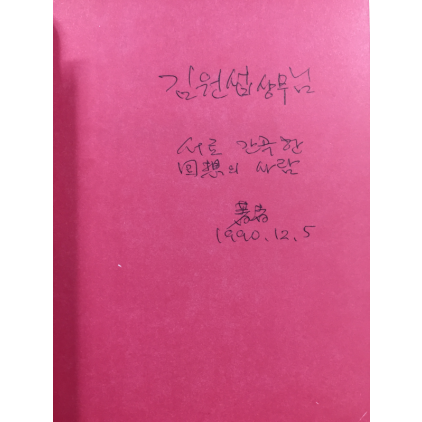 김원섭 상무님
서로 간곡한
回想의 사람
著者
1990.12.5